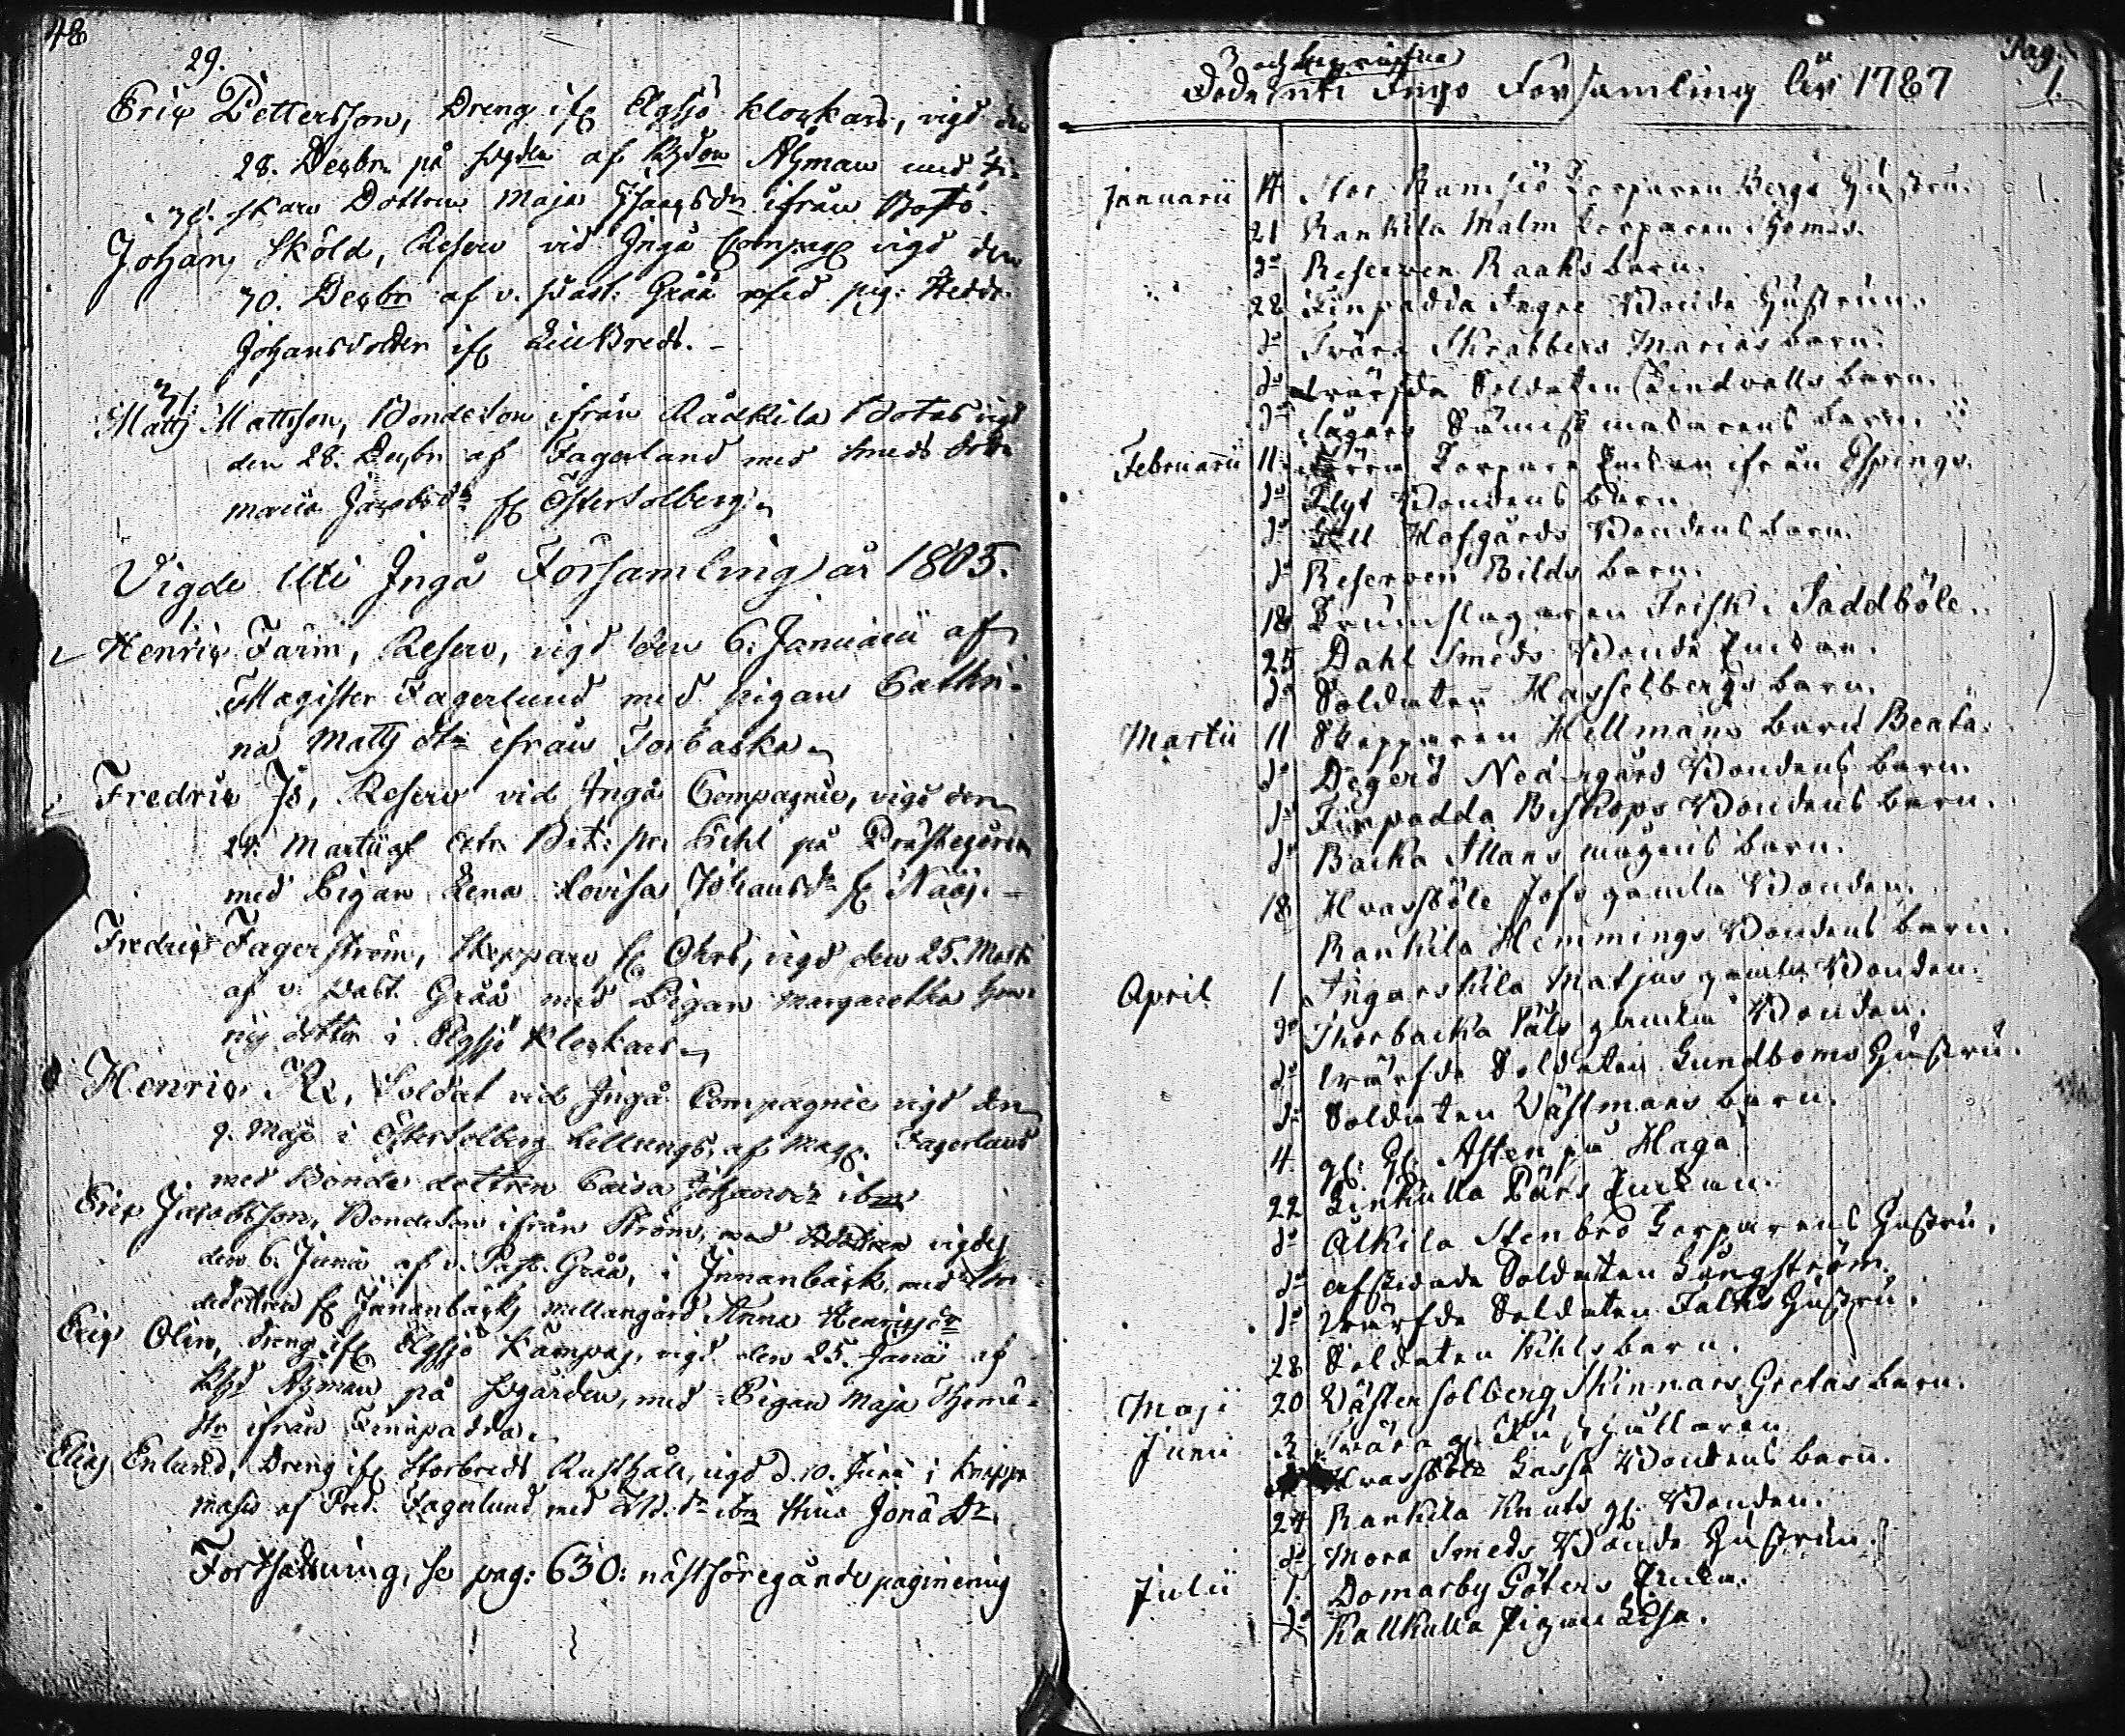 48
29.
Eric Pettersson, Dreng ifr Elgsjö Klockars, vigd den
28. Decbr på af Ahman med
30. skars Dottren Maja Isaacsdr ifrån
Johan Sköld, Reserv vid Ingå Compag vigd den
30. Decbr af v. past: Gråå med pig: Hedda
Johansdotter ifr
31.
Matts Mattsson, Bondeson ifrån Rådkila Botas vigd
den 28. Decbr af Fagerlund med Smeds dottr
Maria Jacobsdr fr Östersolberg
Vigde Uti Ingå Församling år 1805.
1.
Henric Farm, Reserv, vigd den 6. Januarii af
Magister Fagerlund med pigan Cathri-
na Matts dtr ifrån Torbacka
Fredric Is, Reserv vid Ingå Compagnie, vigd den
24. Martii af Extr. på Prästegården
med Pigan Lena Lovisa Johansdr fr
Fredric Fagerström, Skeppare fr Ohrs, vigd den 25. Marti
af v. past. Gråå med Pigan Margaretha Hen-
rics dotter i Elgsjö Klockars
Henric Re, Soldat vid Ingå Compagnie vigd den
9. Maji i Östersolberg af Mag. Fagerlund
med Bonde dottren Caisa Johansdr ibm
Eric Jacobsson, Bondeson ifrån Ström, vigdes
den 6. Junii af v. Past. Gråå, i Innanbäck, med Bon-
dedottren fr Innanbäcks mellangård Anna Henricsdr
Eric Olin, dreng ifr Elgsjö Kämpas, vigd den 25. Junii af
Ahman på pgården, med Pigan Maja Thoma-
dtr ifrån Finnpadda.
Elias Enlund, Dreng ifr Storbreds Rusthåll, vigd d. 10. Junii i
af Fagerlund med ibm Stina Jona Dr
Fortsättning, se pag: 630: nästföregånde paginering
Pag.
1.
och begrafne
Döde uti Ingo Församling År 1787
Januarii 14 Stor Ramsiö Torparen Bergs Hustru.
21 Rankila Malm Torparen Thomas.
do Reserven Raaks barn.
28 Finpadda Ingre Bonde Hustrun.
do Svärs Skrabbers Marias barn.
do Värfda Soldaten Lindvalls barn.
do barn.
Februarii 11 Torpare Enkan ifrån Espings.
do Flyt Bondens barn
do Hofgårds Bondens barn.
do Reserven Bilds barn.
18 Trumslagaren Frisk i Taddböle.
25 Dahl Smeds Bonde Enkan.
do Soldaten Hasselbergs barn.
Martii 11 Skepparen Hellmans barn Beata.
do Degerö Nedergård Bondens barn.
do Finpadda Biskops Bondens barn.
do Backa Allans mågens barn.
18 Hvassböle Joss gamla Bonden.
Rankila Hemmings Bondens barn.
April 1 Ingarskila Matjas gamla Bonden.
do Thorbacka Påls gamla Bonden.
do Värfde Soldaten Lundboms Hustru.
do Soldaten Västmans barn.
4. gl. Asten på Haga
22 Linkulla Pärs Enkan.
do Ålkila Stenbro Torparens Hustru.
do afskedade Soldaten Ljungström.
do Värfde Soldaten Falks Hustru.
28 Soldaten Kihls barn.
Maji 20 Västersolberg Skinnars Gretas barn.
Junii 3 Svärs gl.
Hvassböle Lasse Bondens barn.
24 Rankila Knuts gl. Bonden.
do Mora Smeds Bonde Hustrun.
Julii 1. Domarby Göters Enka.
do Kallkulla Pigan Lisa.